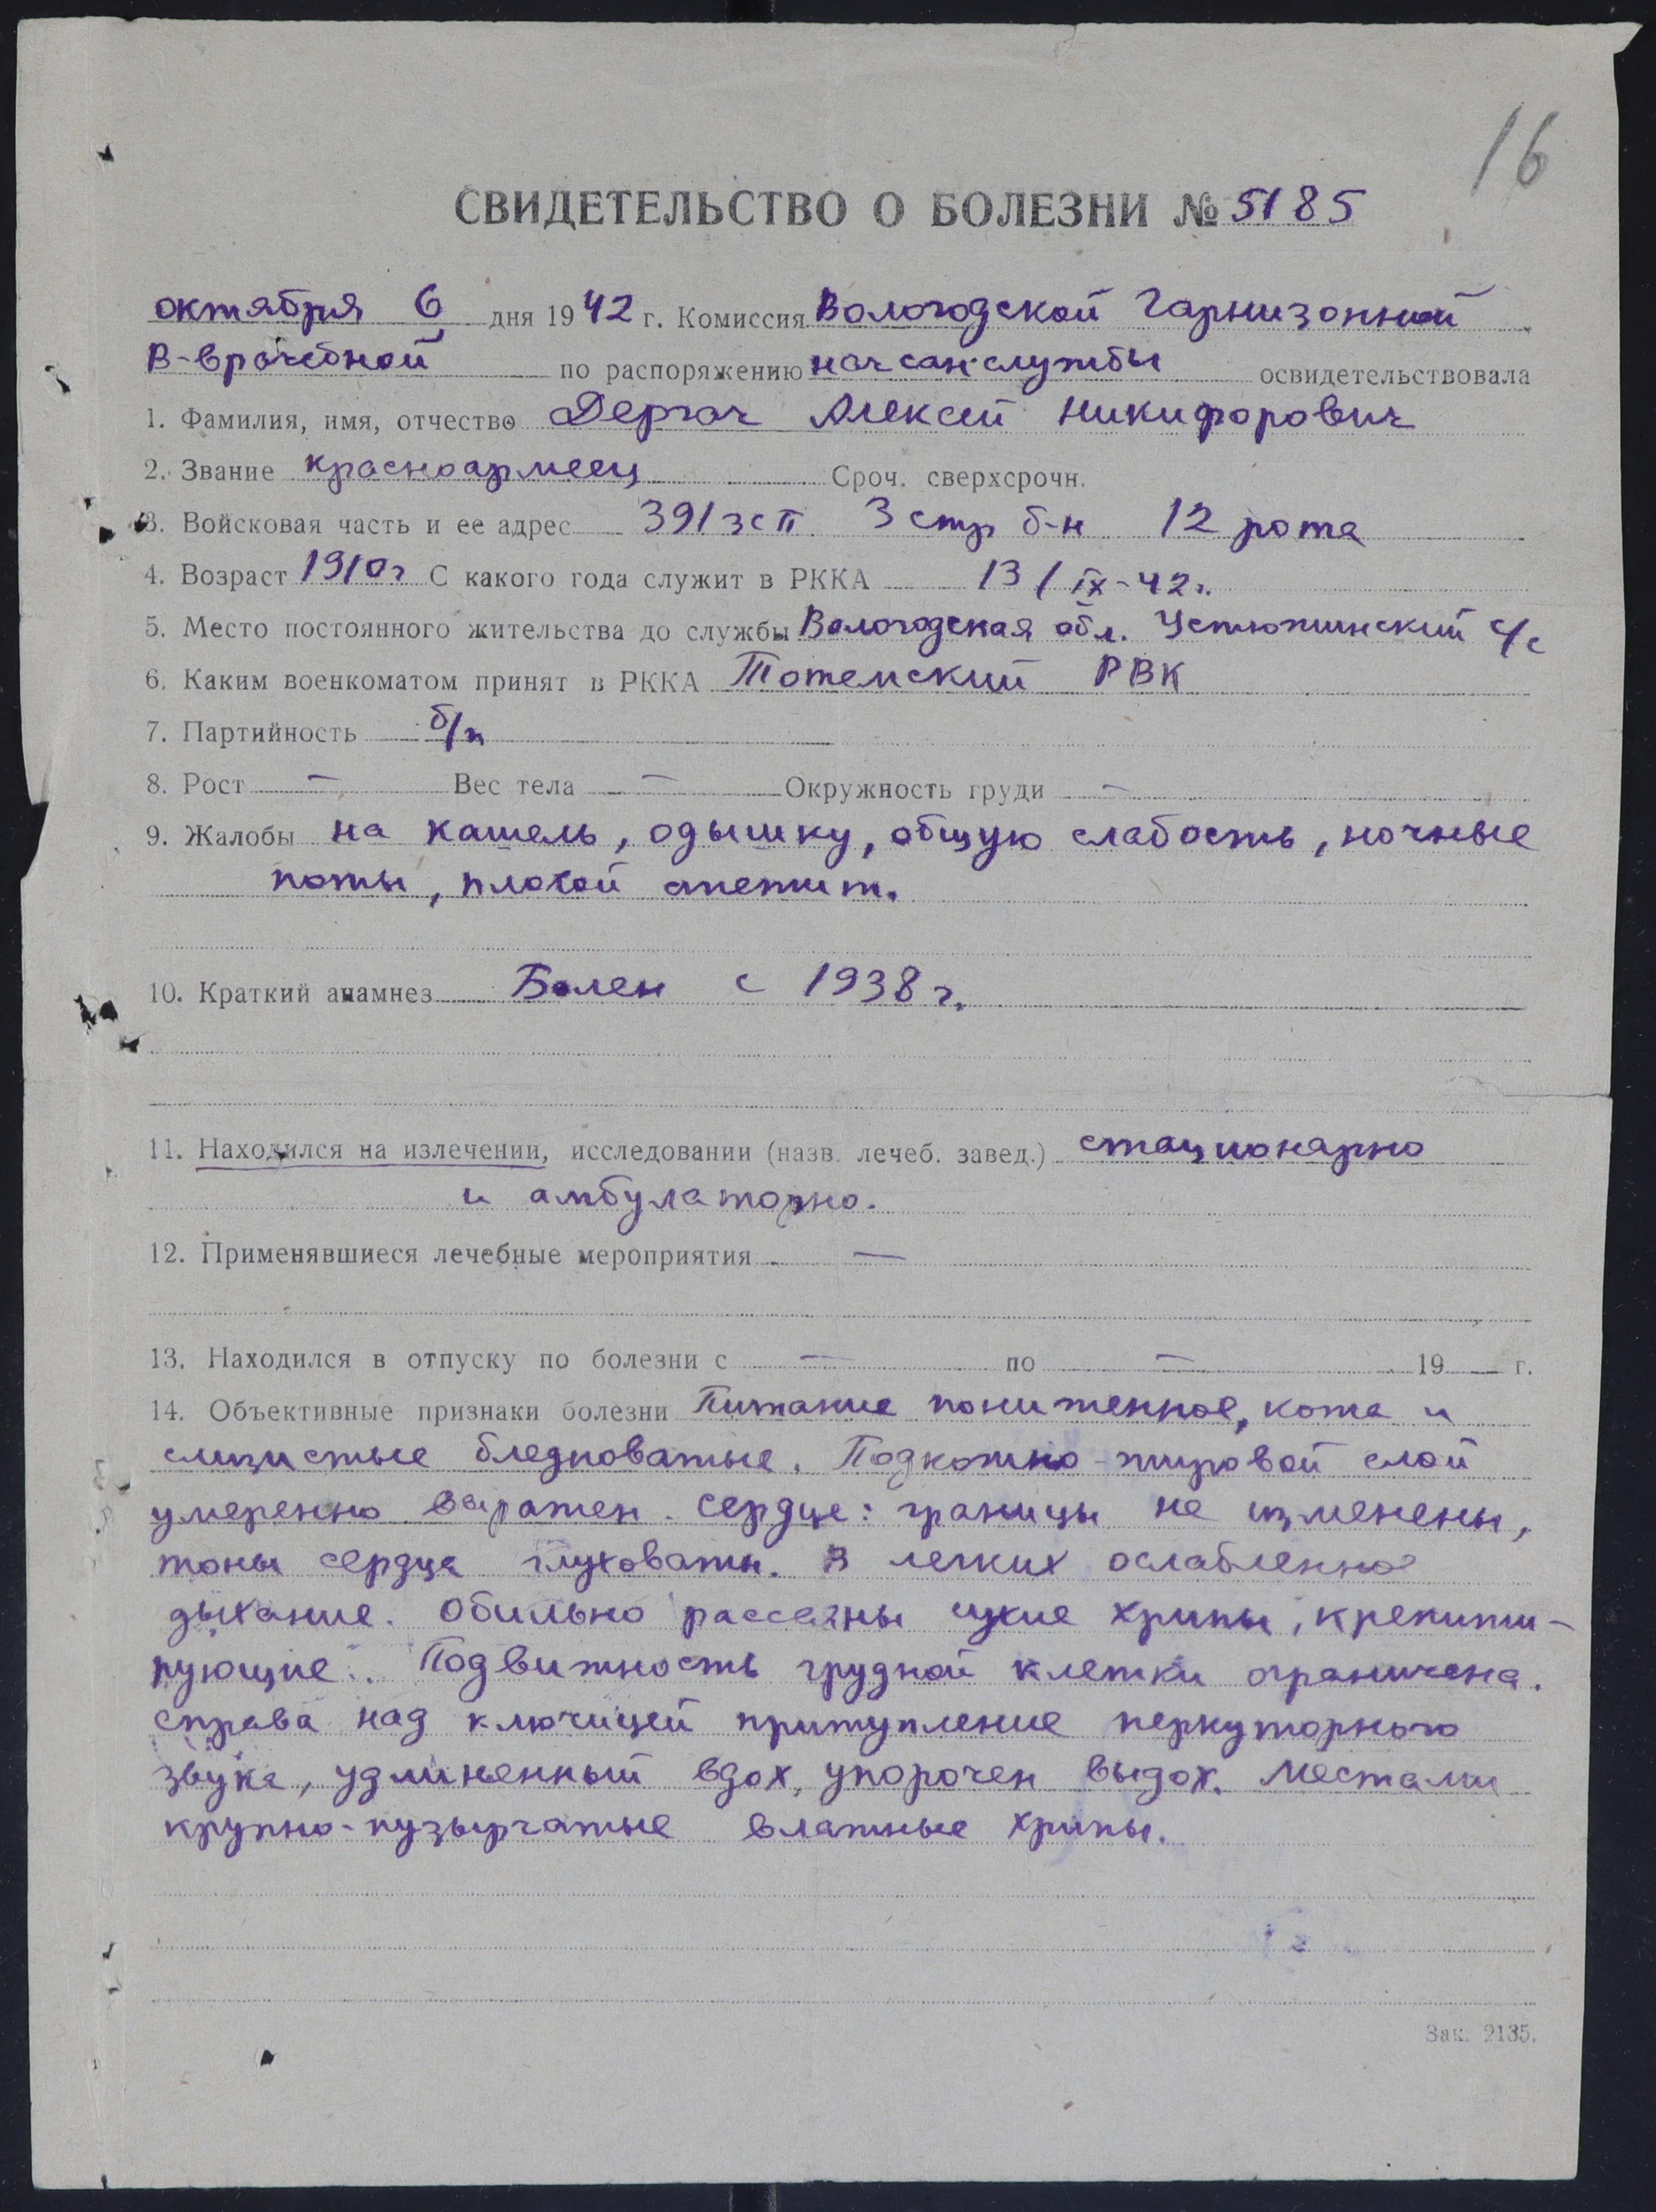 16
СВИДЕТЕЛЬСТВО О БОЛЕЗНИ № 5185
октября 6 дня 1942 г. Комиссия Вологодской Гарнизонной
В-врачебной по распоряжению начсанслужбы освидетельствовала
1. Фамилия, имя, отчество Дергач Алексей Никифорович
2. Звание красноармеец Сроч. сверхсрочн.
3. Войсковая часть и ее адрес 391 зсп 3 стр б-н 12 рота
4. Возраст 1910 г С какого года служит в РККА 13/IX-42 г.
5. Место постоянного жительства до службы Вологодская обл. Устюжинский с/с
6. Каким военкоматом принят в РККА Тотемский РВК
7. Партийность б/п
8. Рост — Вес тела — Окружность груди —
9. Жалобы на кашель, одышку, общую слабость, ночные
поты, плохой апетит.
10. Краткий анамнез Болен с 1938 г.
11. Находился на излечении, исследовании (назв. лечеб. завед.) стационарно
и амбулаторно.
12. Применявшиеся лечебные мероприятия —
13. Находился в отпуску по болезни с — по — 19 г.
14. Объективные признаки болезни Питание пониженное, кожа и
слизистые бледноватые. Подкожно-жировой слой
умеренно выражен. Сердце: границы не изменены,
тоны сердца глуховаты. В легких ослабленное
дыхание. Обильно рассеяны сухие хрипы, крепити-
рующие. Подвижность грудной клетки ограничена.
Справа над ключицей притупление перкуторного
звука, удлиненный вдох, упорочен выдох. Местами
крупно-пузырчатые влажные хрипы.
Зак. 2135.